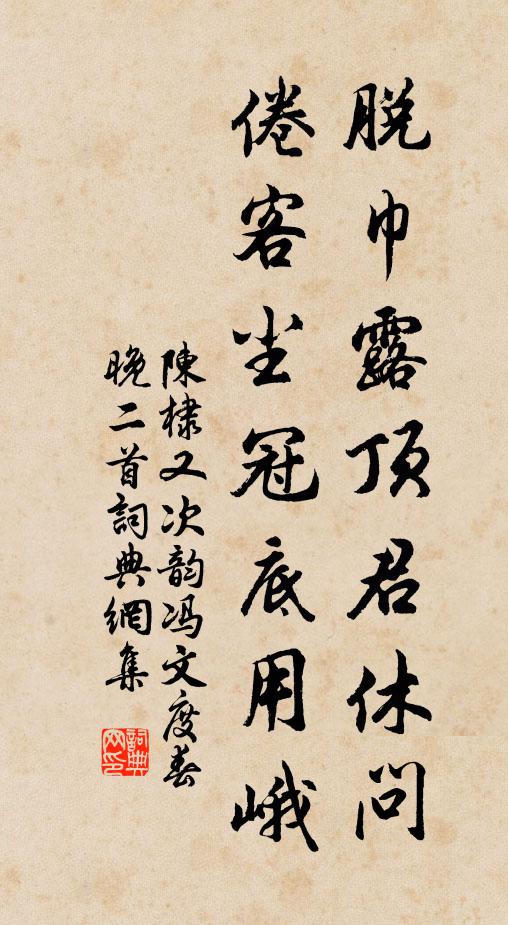 脱巾露顶君休问
倦客尘冠底用峨
陳棣又次韵冯文度春
晚二首詞典網集
詞典网印